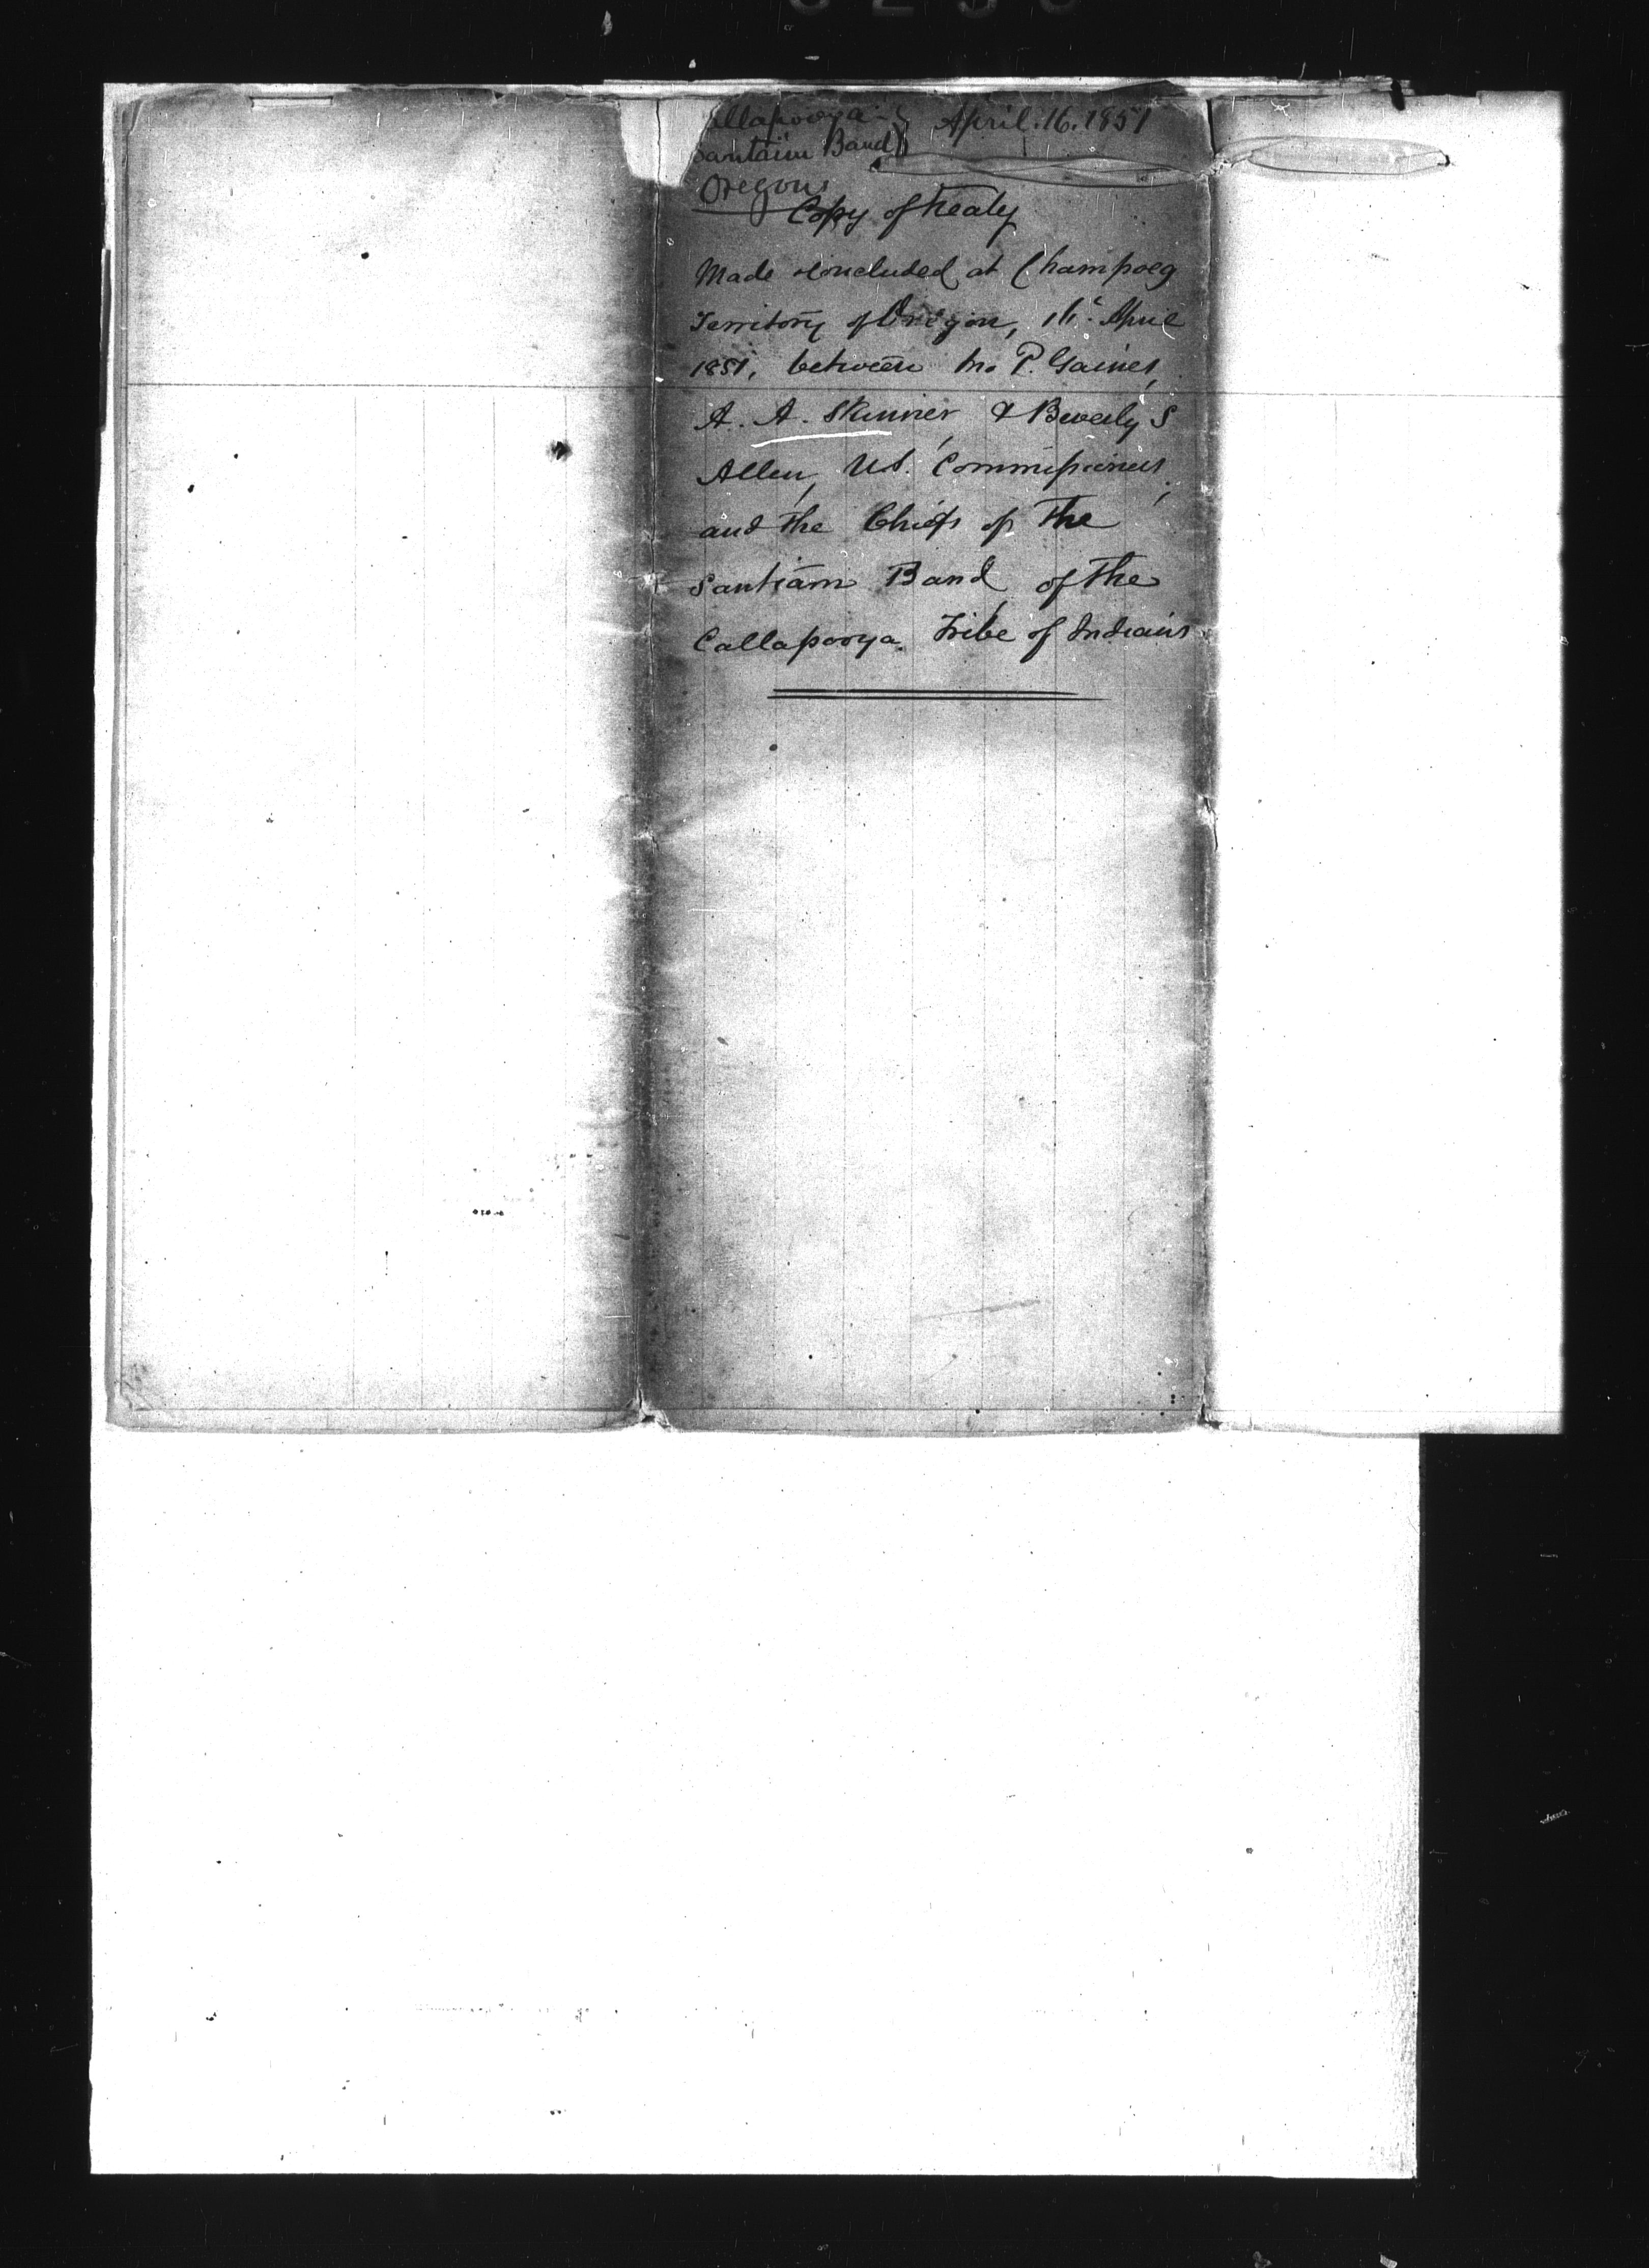 allapooya } April. 16. 1851
Santaim Band }
Oregon
Copy of Treaty
Made & concluded at Champoeg
Territory of Oregon, 16th April
1851, between Jno P. Gaines,
A. A. Skinner & Beverly S
Allen, U.S. Commissioners,
and the Chiefs of the
Santiam Band of the
Callapooya Tribe of Indians